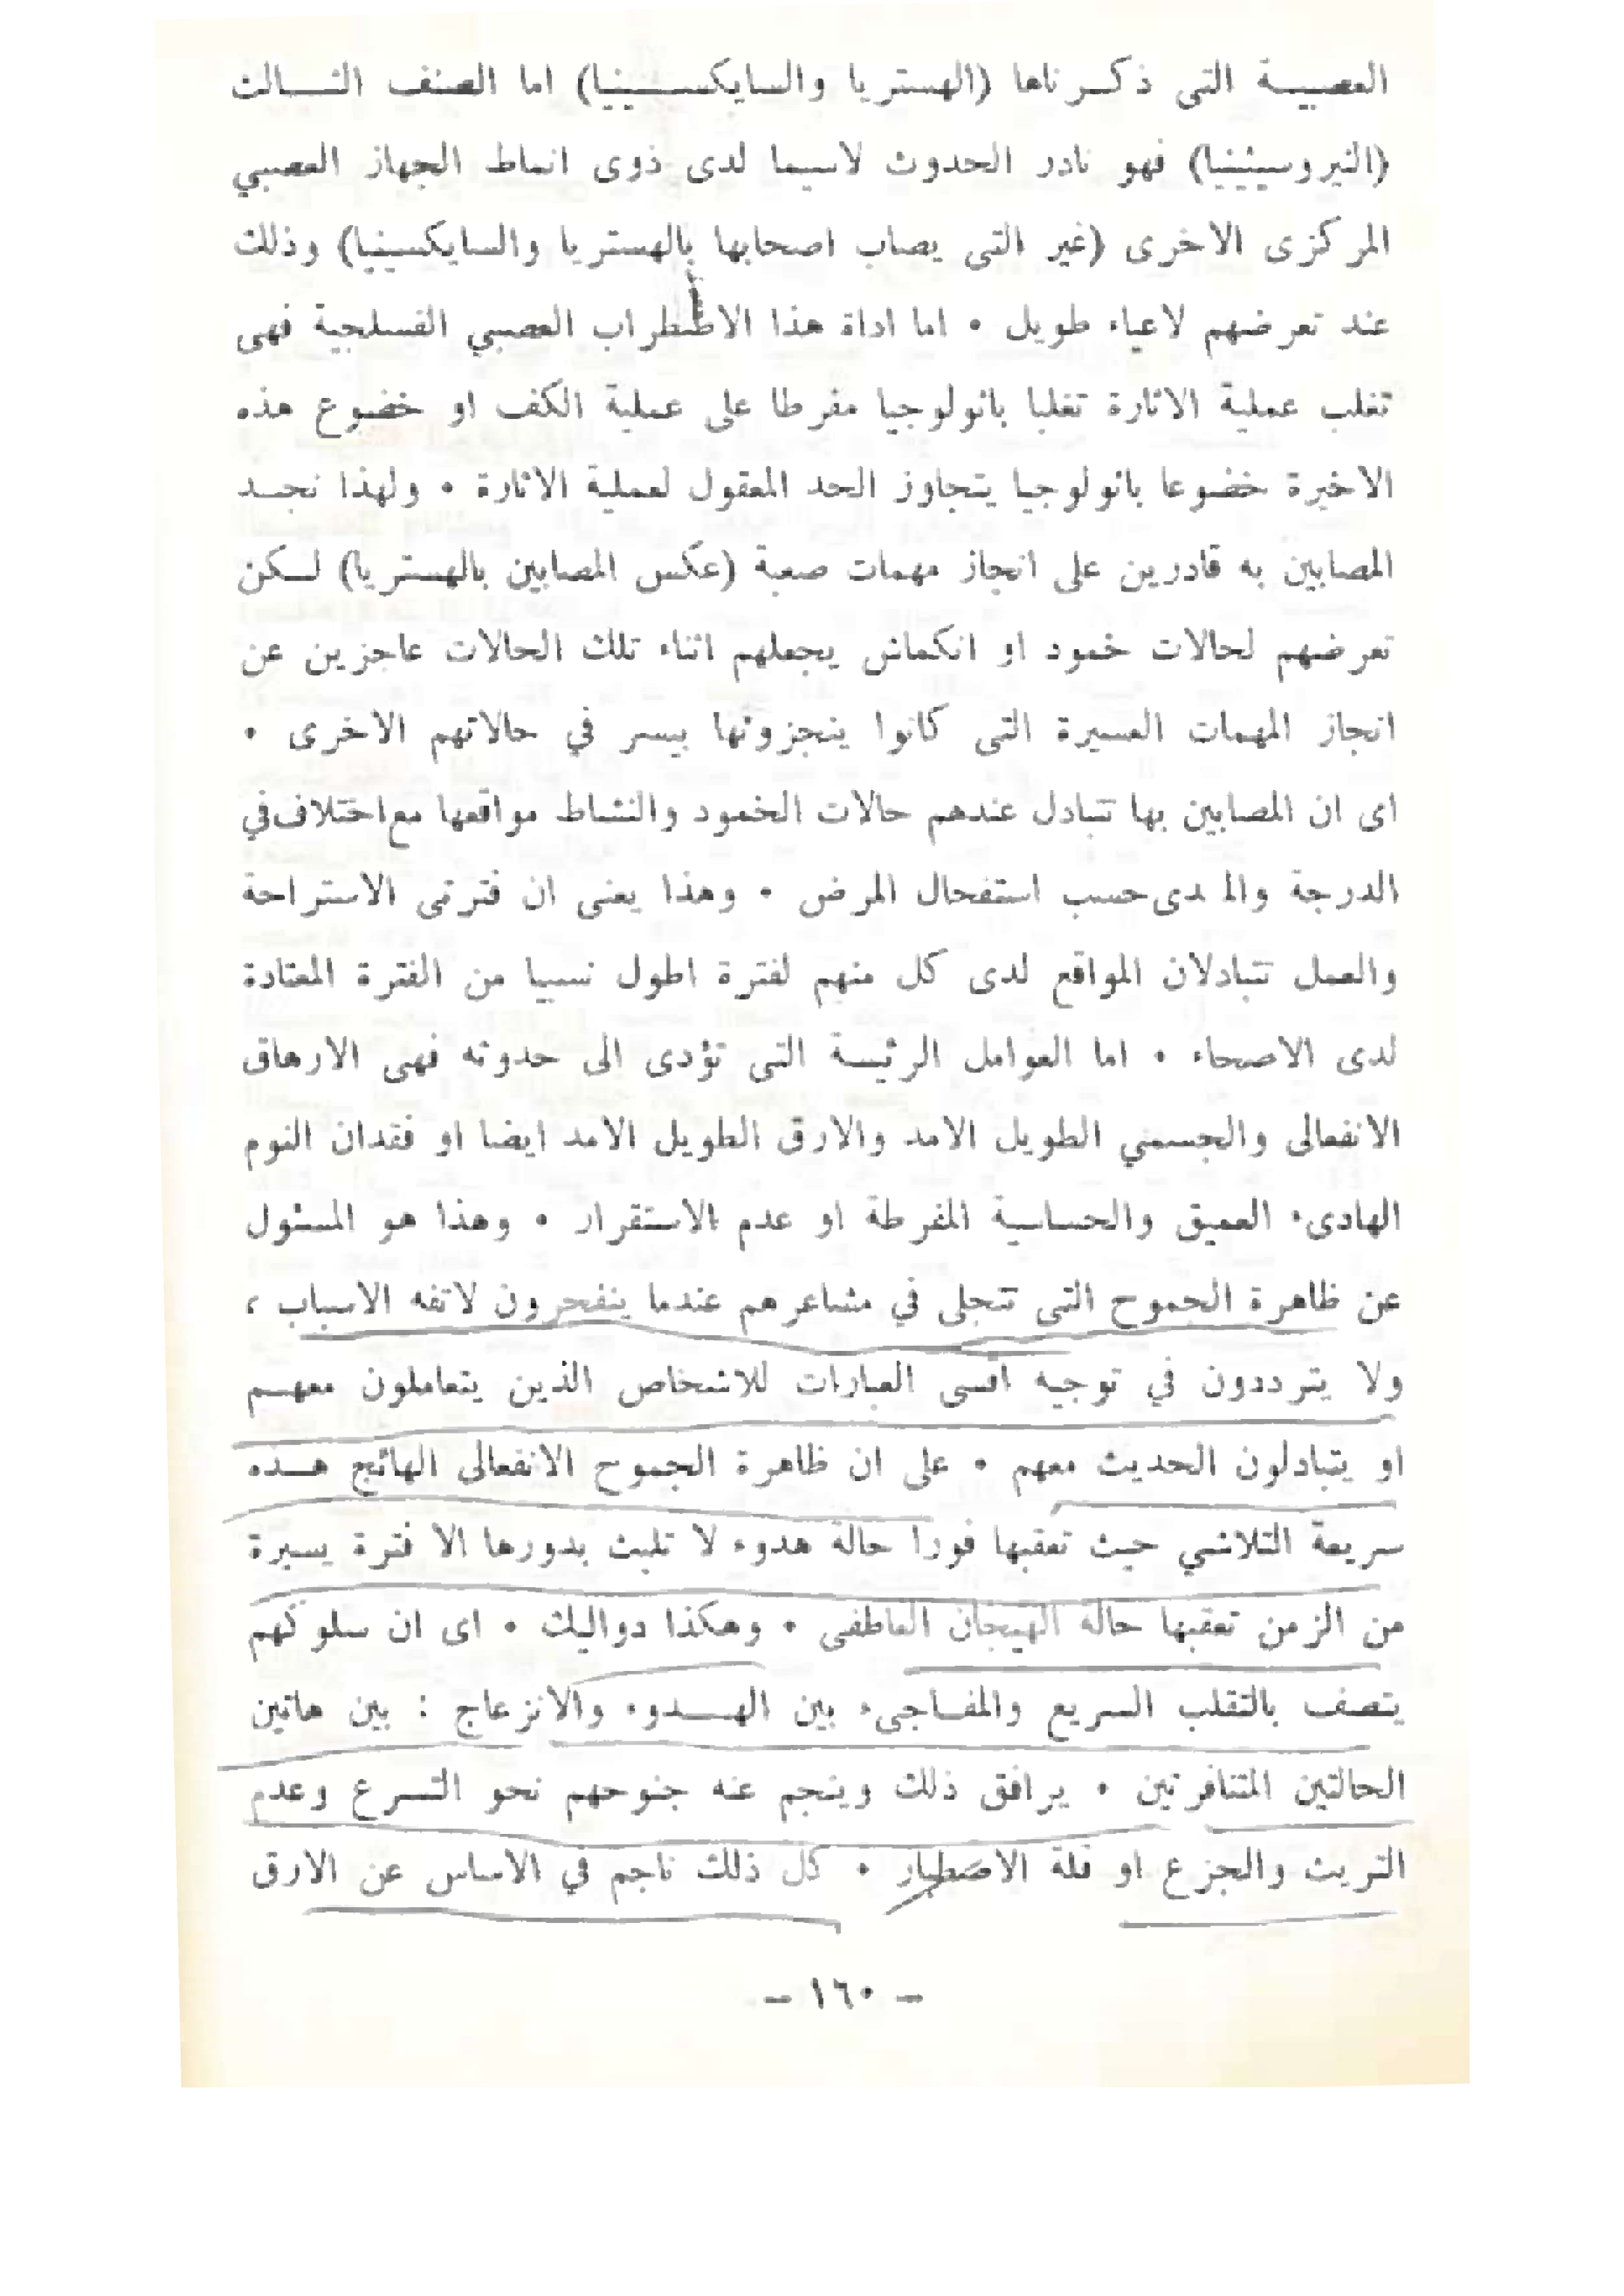 العصبيــة التى ذكــرناها (الهستريا والسايكســينيا) اما الصنف الثــالث
(النيروسيثينيا) فهو نادر الحدوث لاسيما لدى ذوى انماط الجهاز العصبي
المركزى الاخرى (غير التى يصاب اصحابها بالهستريا والسايكسينيا) وذلك
عند تعرضهم لاعياء طويل • اما اداة هذا الاضطراب العصبي الفسلجية فهى
تغلب عملية الاثارة تغلبا باثولوجيا مفرطا على عملية الكف او خضوع هذه
الاخيرة خضوعا باثولوجيا يتجاوز الحد المعقول لعملية الاثارة • ولهذا نجــد
المصابين به قادرين على انجاز مهمات صعبة (عكس المصابين بالهستريا) لــكن
تعرضهم لحالات خمود او انكماش يجعلهم اثناء تلك الحالات عاجزين عن
انجاز المهمات العسيرة التى كانوا ينجزونها بيسر في حالاتهم الاخرى •
اى ان المصابين بها تتبادل عندهم حالات الخمود والنشاط مواقعها مع اختلاف في
الدرجة والمدى حسب استفحال المرض • وهذا يعنى ان فترتى الاستراحة
والعمل تتبادلان المواقع لدى كل منهم لفترة اطول نسبيا من الفترة المعتادة
لدى الاصحاء • اما العوامل الرئيسة التى تؤدى الى حدوثه فهى الارهاق
الانفعالى والجسمي الطويل الامد والارق الطويل الامد ايضا او فقدان النوم
الهادىء العميق والحساسية المفرطة او عدم الاستقرار • وهذا هو المسئول
عن ظاهرة الجموح التى تتجلى في مشاعرهم عندما ينفجرون لاتفه الاسباب ،
ولا يترددون في توجيه اقسى العبارات للاشخاص الذين يتعاملون معهــم
او يتبادلون الحديث معهم • على ان ظاهرة الجموح الانفعالى الهائج هــذه
سريعة التلاشي حيث تعقبها فورا حالة هدوء لا تلبث بدورها الا فترة يسيرة
من الزمن تعقبها حالة الهيجان العاطفى • وهكذا دواليك • اى ان سلوكهم
يتصف بالتقلب السريع والمفــاجىء بين الهــدوء والانزعاج : بين هاتين
الحالتين المتنافرتين • يرافق ذلك وينجم عنه جنوحهم نحو التسرع وعدم
التريث والجزع او قلة الاصطبار • كل ذلك ناجم في الاساس عن الارق
– ١٦٠ –